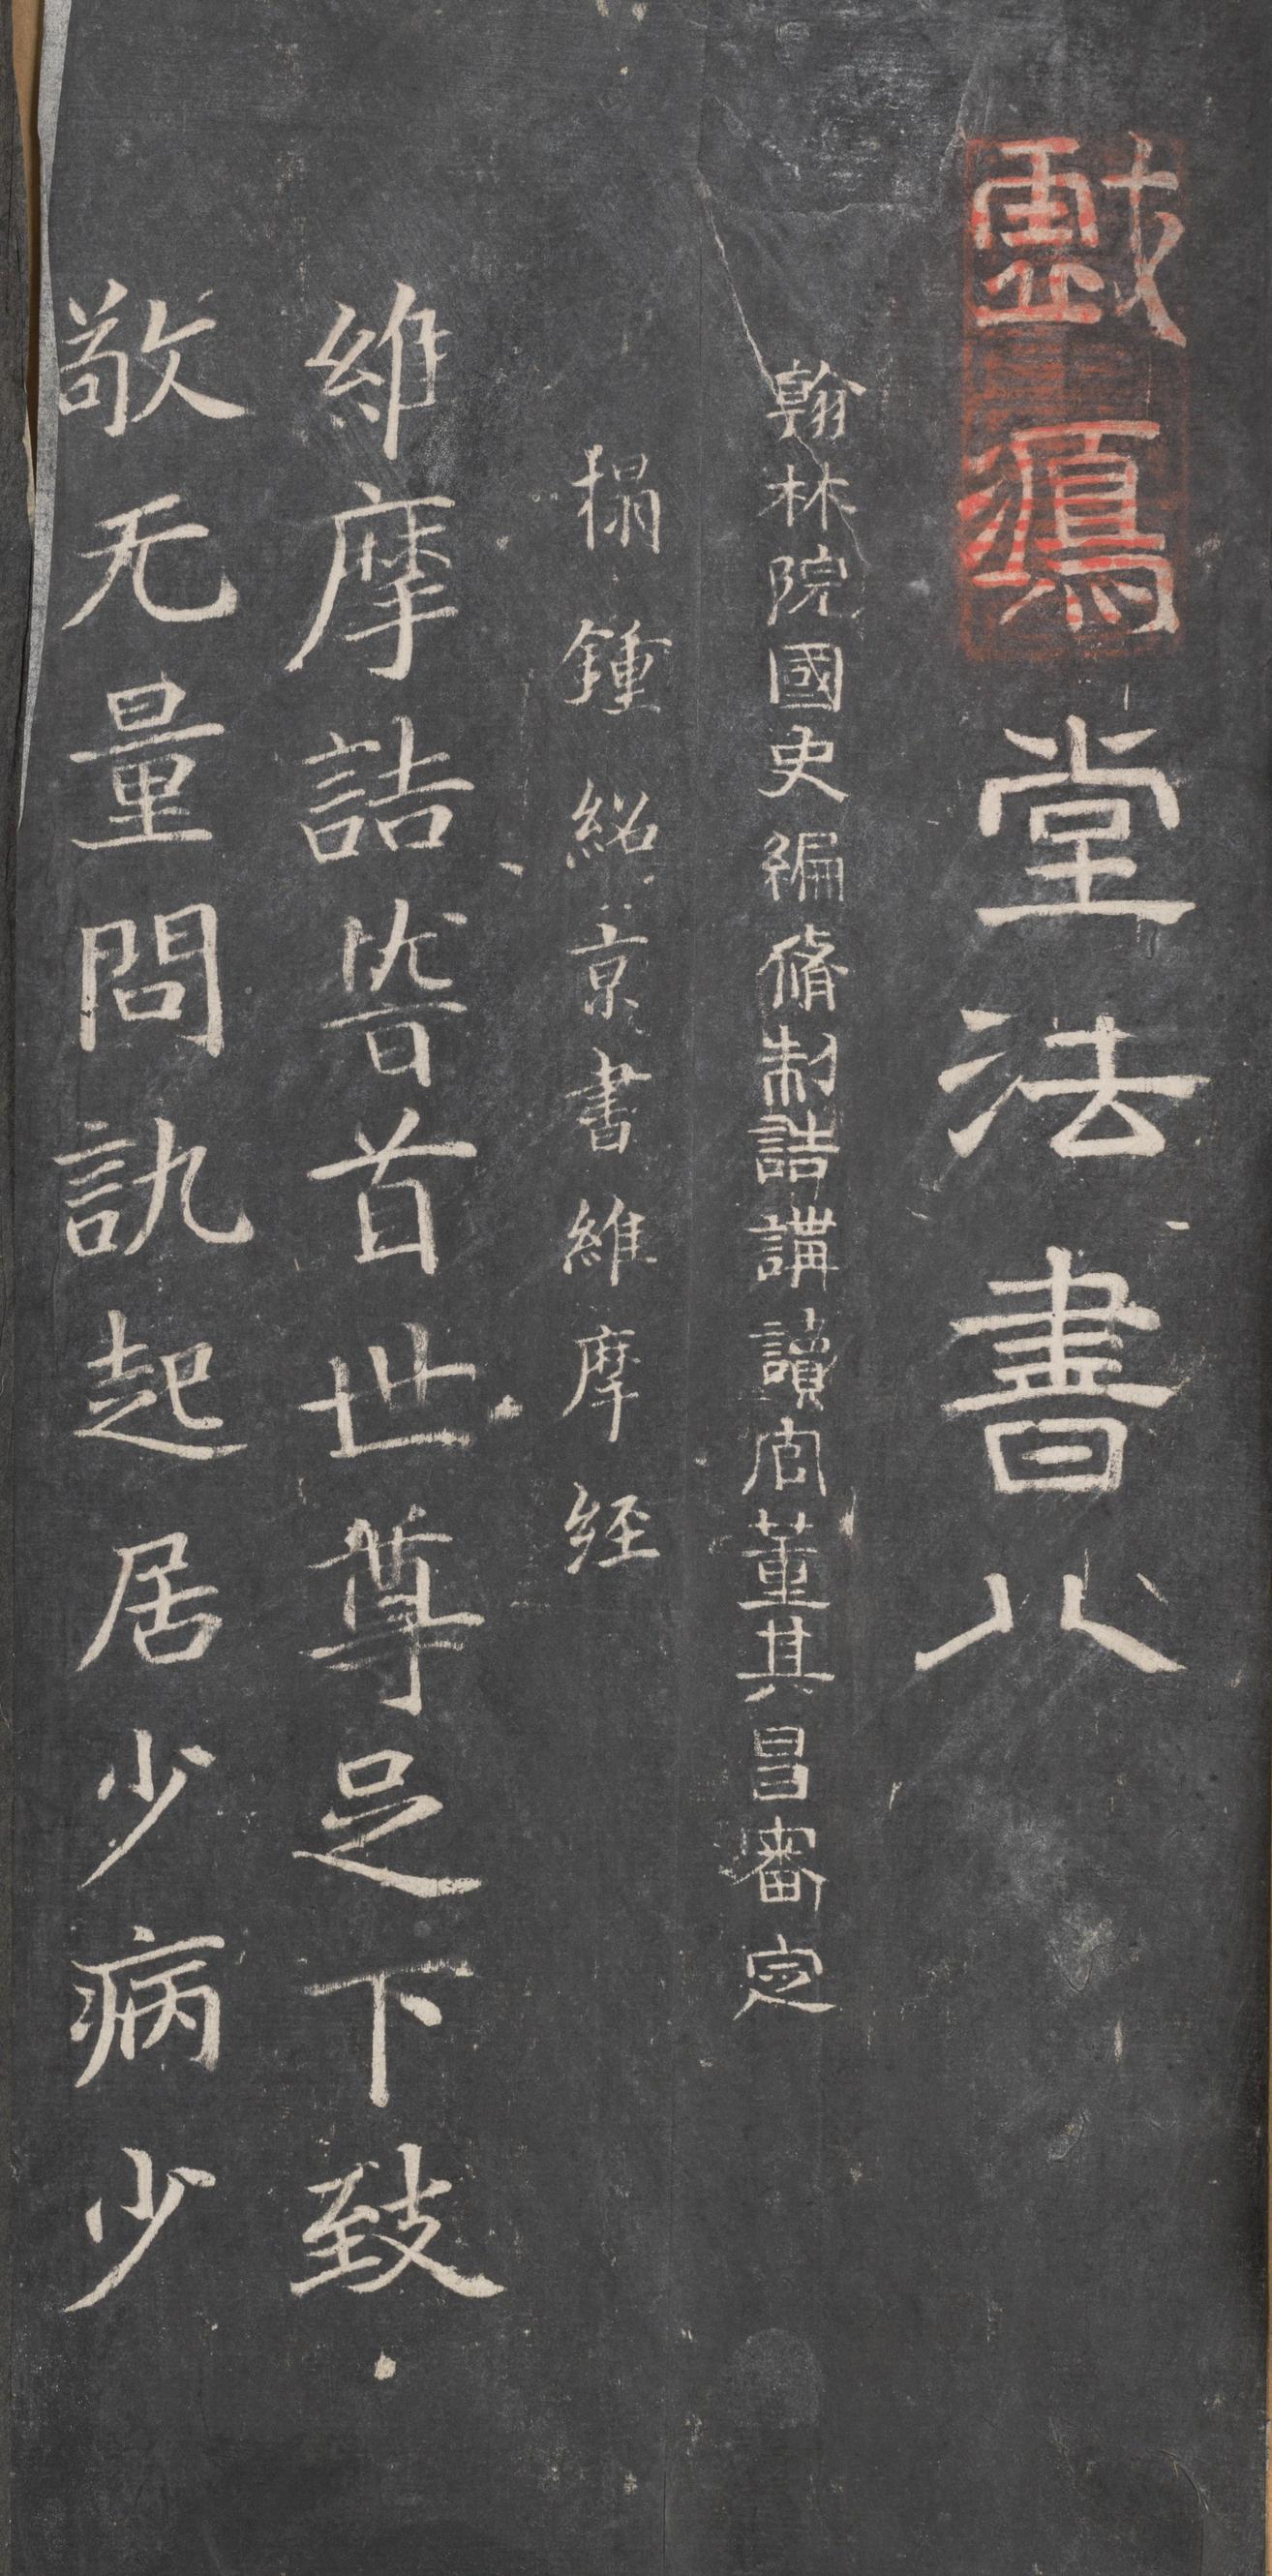 戲鴻堂法書八
翰林院國史編脩制誥講讀官董其昌審定
榻鍾紹京書維摩經
維摩詰稽首世尊足下致
敬无量問訊起居少病少